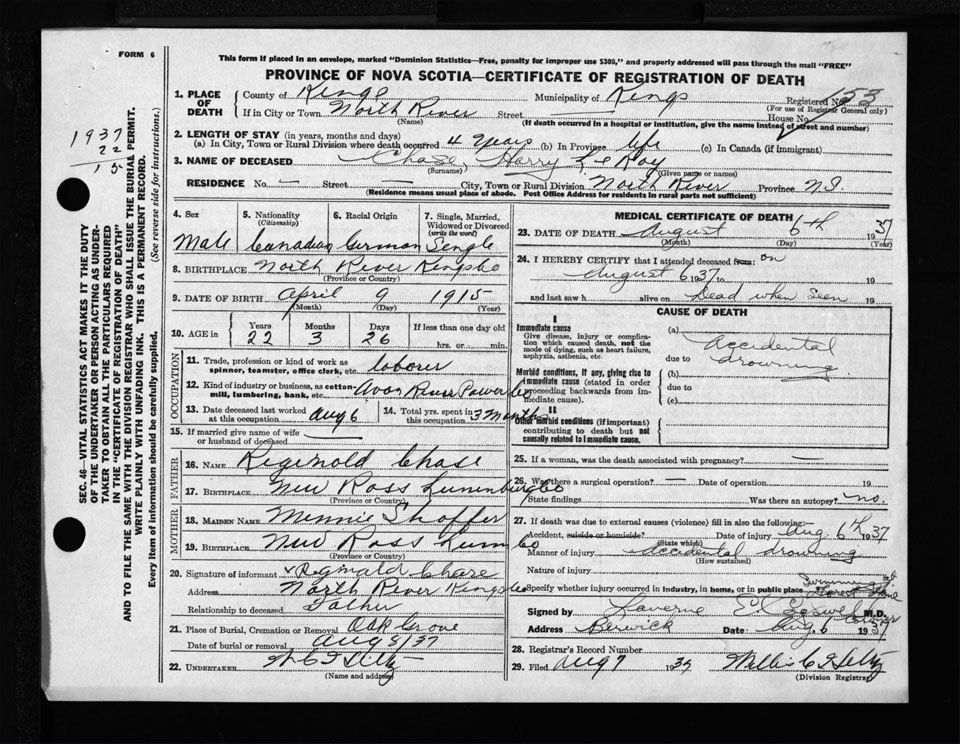 FORM 6
This form if placed in an envelope, marked "Dominion Statistics—Free, penalty for improper use $300", and properly addressed will pass through the mail "FREE"
PROVINCE OF NOVA SCOTIA—CERTIFICATE OF REGISTRATION OF DEATH
1. PLACE OF DEATH County of Kings Municipality of Kings Registered No. 153
(For use of Registrar General only)
If in City or Town North River Street House No.
(Name) (If death occurred in a hospital or institution, give the name instead of street and number)
2. LENGTH OF STAY (in years, months and days)
(a) In City, Town or Rural Division where death occurred 4 years (b) In Province life (c) In Canada (if immigrant)
3. NAME OF DECEASED Chase, Harry Le Roy
(Surname) (Given name or names)
RESIDENCE No. — Street — City, Town or Rural Division North River Province N.S.
(Residence means usual place of abode. Post Office Address for residents in rural parts not sufficient)
4. Sex 5. Nationality (Citizenship) 6. Racial Origin 7. Single, Married, Widowed or Divorced (write the word)
Male Canadian German Single
8. BIRTHPLACE North River Kings Co
(Province or Country)
9. DATE OF BIRTH April 9 1915
(Month) (Day) (Year)
10. AGE in Years Months Days If less than one day old
22 3 26 hrs. or min.
OCCUPATION
11. Trade, profession or kind of work as spinner, teamster, office clerk, etc. laborer
12. Kind of industry or business, as cotton-mill, lumbering, bank, etc. Avon River Power Co
13. Date deceased last worked at this occupation Aug 6 14. Total yrs. spent in this occupation 3 Months
15. If married give name of wife or husband of deceased —
FATHER
16. NAME Reginold Chase
17. BIRTHPLACE New Ross Lunenburg Co
(Province or Country)
MOTHER
18. MAIDEN NAME Minnie Shaffer
19. BIRTHPLACE New Ross Lun Co
(Province or Country)
20. Signature of informant x Reginald Chase
Address North River Kings Co
Relationship to deceased Father
21. Place of Burial, Cremation or Removal Oak Grove
Date of burial or removal Aug 8/37
22. UNDERTAKER
(Name and address)
MEDICAL CERTIFICATE OF DEATH
23. DATE OF DEATH August 6th 1937
(Month) (Day) (Year)
24. I HEREBY CERTIFY that I attended deceased from: on
August 6 1937 to 19
and last saw h alive on Dead when seen 19
CAUSE OF DEATH
I
Immediate cause
Give disease, injury or complication which caused death, not the mode of dying, such as heart failure, asphyxia, asthenia, etc.
(a) Accidental drowning
due to
Morbid conditions, if any, giving rise to immediate cause (stated in order proceeding backwards from immediate cause).
(b)
due to
(c)
II
Other morbid conditions (if important) contributing to death but not causally related to immediate cause.
25. If a woman, was the death associated with pregnancy? —
26. Was there a surgical operation? — Date of operation 19
State findings Was there an autopsy? no.
27. If death was due to external causes (violence) fill in also the following:—
Accident, suicide or homicide? Date of injury Aug. 6th 1937
(State which)
Manner of injury accidental drowning
(How sustained)
Nature of injury
Specify whether injury occurred in industry, in home, or in public place Swimming
Signed by Laverne M.D.
Coroner
Address Berwick Date Aug 6 1937
28. Registrar's Record Number
29. Filed Aug 7 1937
(Division Registrar)
SEC. 46—VITAL STATISTICS ACT MAKES IT THE DUTY
OF THE UNDERTAKER OR PERSON ACTING AS UNDER-
TAKER TO OBTAIN ALL THE PARTICULARS REQUIRED
IN THE "CERTIFICATE OF REGISTRATION OF DEATH"
AND TO FILE THE SAME WITH THE DIVISION REGISTRAR WHO SHALL ISSUE THE BURIAL PERMIT.
WRITE PLAINLY WITH UNFADING INK. THIS IS A PERMANENT RECORD.
Every item of information should be carefully supplied. (See reverse side for instructions.)
1937
22
15